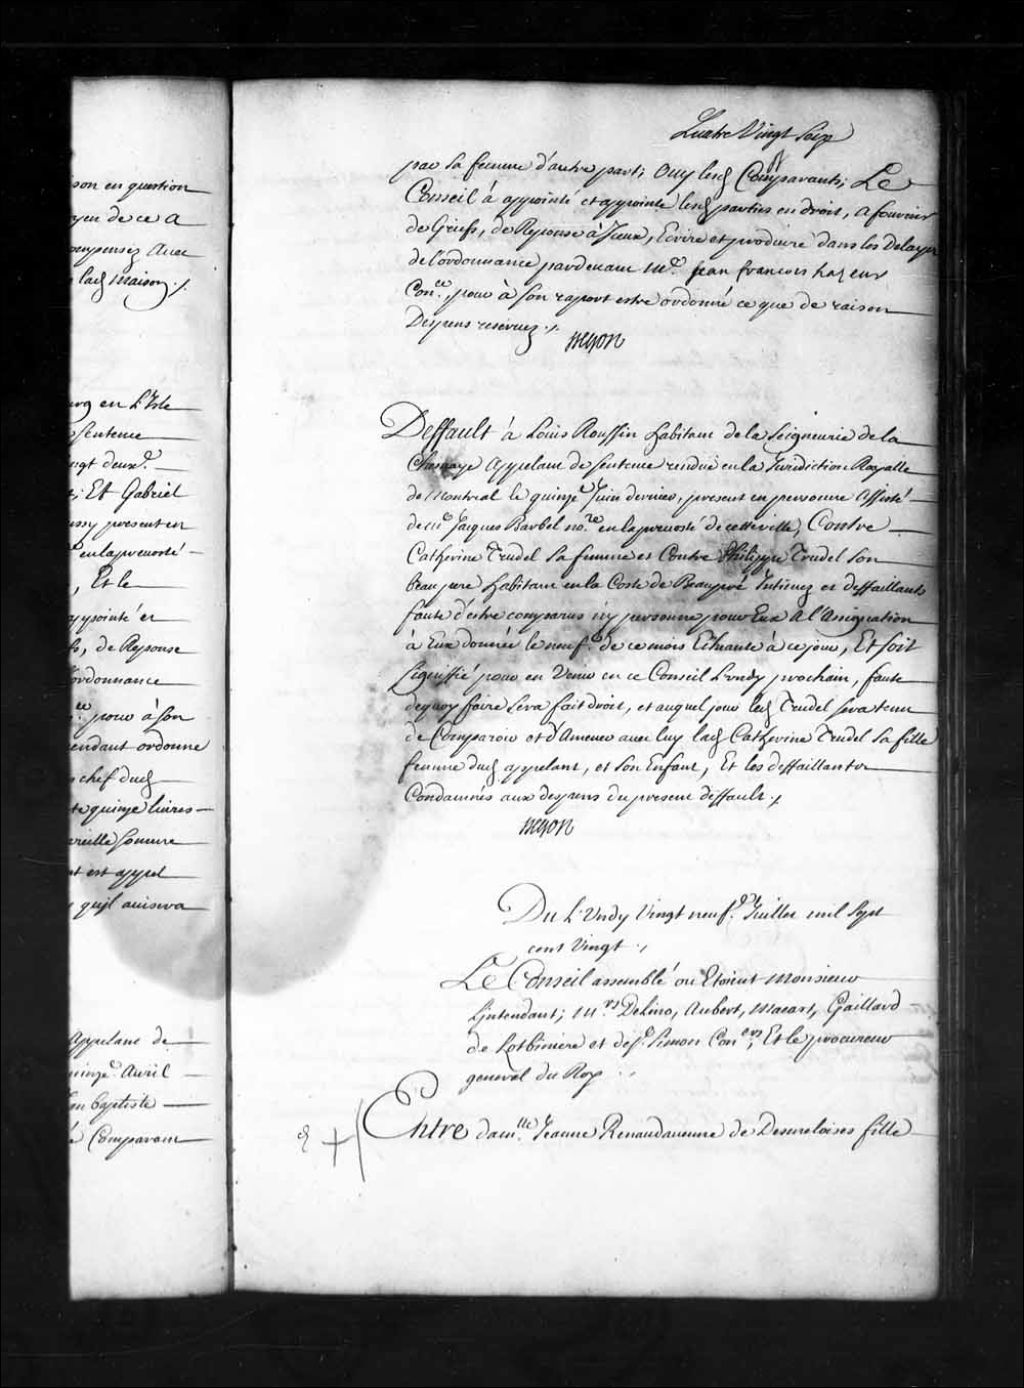 son en question
yen de ce a
compensez avec
lad maison ./.
urg en L'Isle
sentence
ingt deux.
Et Gabriel
ussy present en
en la prevosté
, Et le
appointé et
fs, de Reponse
ordonnance
pour à son
pendant ordonne
chef dud
te quinze livres
pareille somme
et est appel
quil avisera
Appelant de
quinze Avril
Jean Baptiste
Comparant
Quatre Vingt seize
par sa femme d'autre part; Ouy lesd Comparants; Le
Conseil à appointé et appointe lesd parties en droit, a fournir
de Griefs, de Reponse à Iceux, Ecrire et produire dans les Delays
de l'ordonnance pardevant Me. Jean francois hazeur
Coner. pour à son raport estre ordonné ce que de raison
Despens reservez ./.
Begon
Deffault à Louis Roussin habitant de la Seigneurie de la
Chesnaye Appelant de sentence rendüe en la Juridiction Royalle
de Montreal le quinze Juin dernier, present en personne assisté
de Me Jaques Barbel nore en la prevosté de cette ville, Contre
Catherine Trudel sa femme et Contre Philippe Trudel son
beau pere habitant en la Coste de Beaupré Intimez et deffaillants
faute d'estre comparus ny personne pour Eux a l'assignation
à Eux donnée le neuf de ce mois Echeante à ce jour, Et soit
signiffié pour en Venir en ce Conseil Lundy prochain, faute
dequoy faire sera fait droit, et auquel jour led Trudel sera tenu
de Comparoir et d'Amener avec luy lad Catherine Trudel sa fille
femme dud appelant, et son Enfant, Et les deffaillants
Condamnés aux despens du present deffault ./.
Begon
Du Lundy Vingt neuf. Juillet mil sept
cent Vingt ./.
Le Conseil assemblé ou Etoient Monsieur
Lintendant; Mrs. DeLino, Aubert, Macart, Gaillard
de Lotbiniere et de St Simon Coners, Et le procureur
general du Roy
Entre damlle. Jeanne Renaudavenne de Desmeloises fille